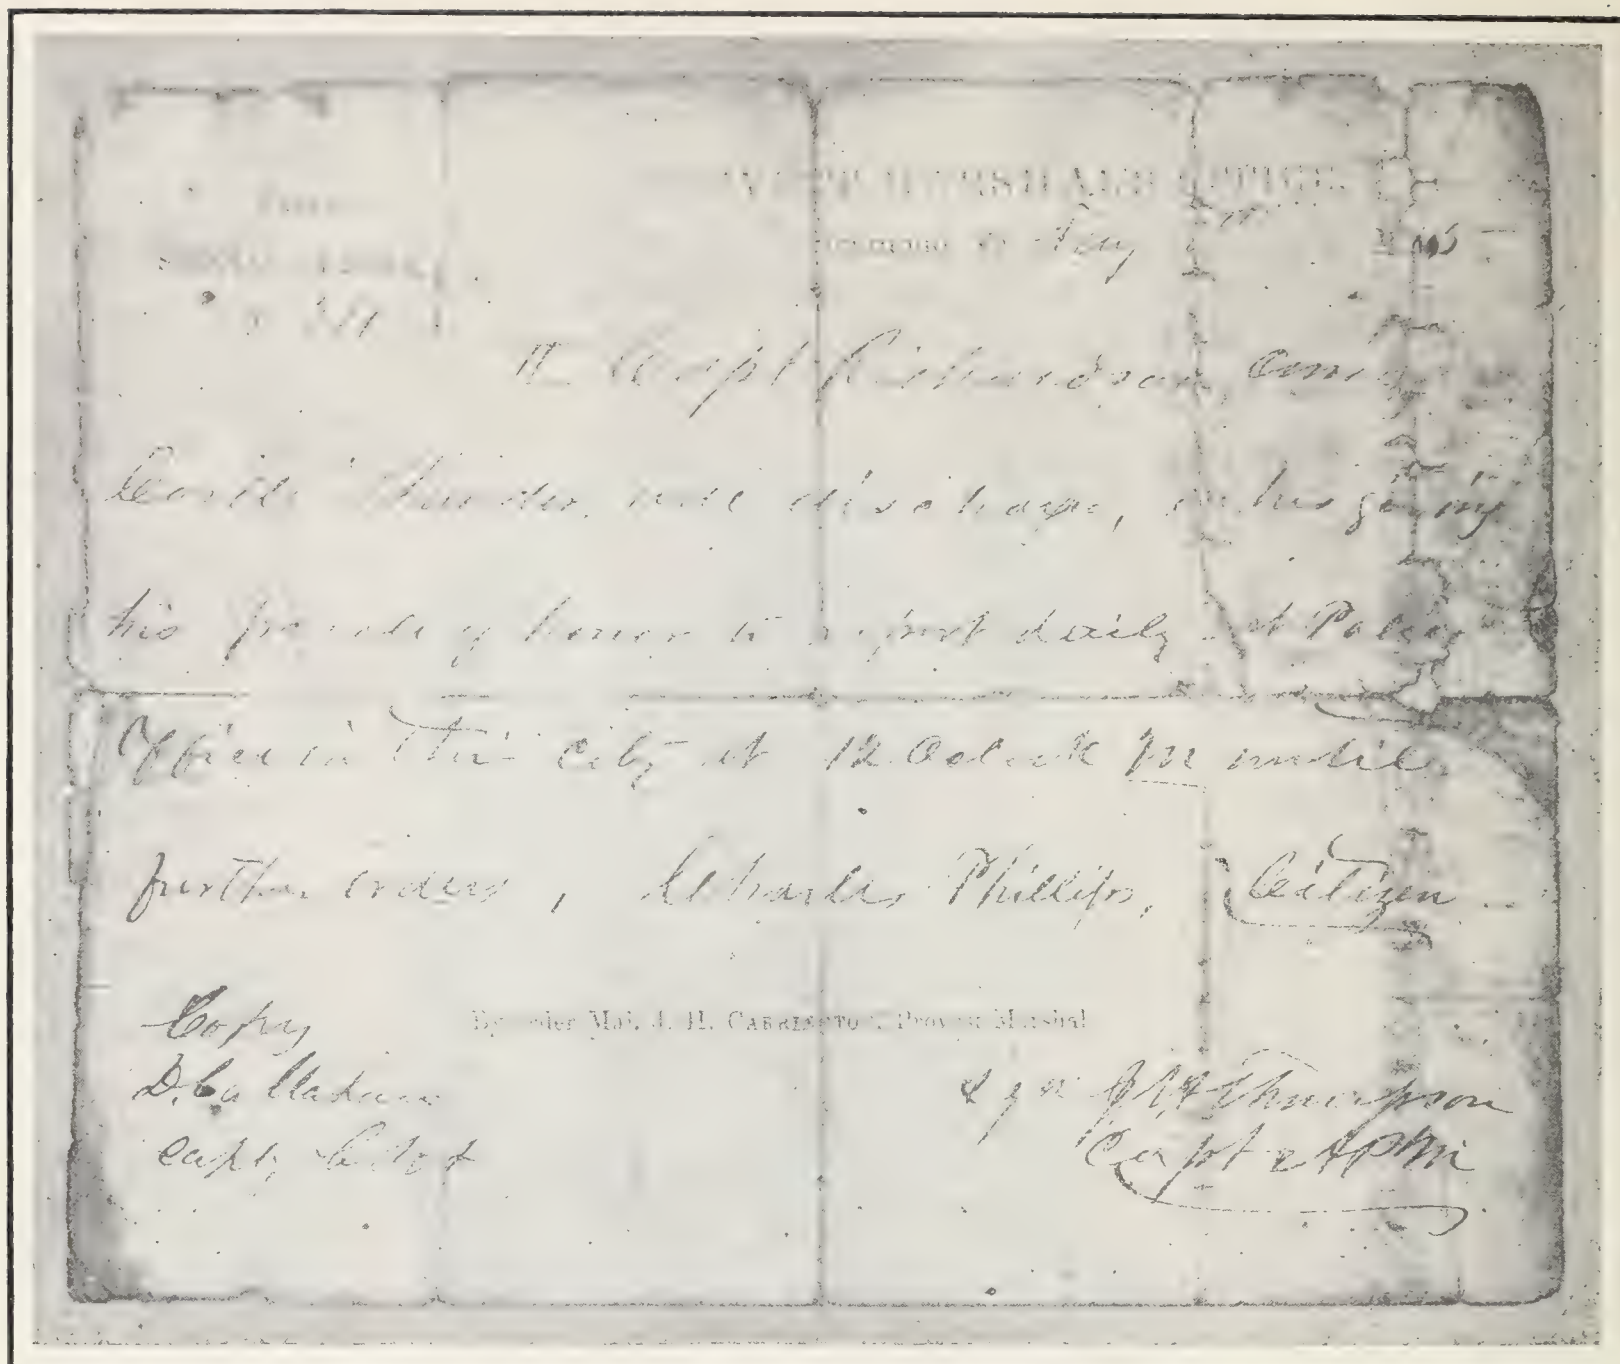 PROVOST MARSHAL'S OFFICE,
Richmond, Va. Feby 1865
Capt Richardson, Comdg
Castle Thunder will discharge, on his giving
his parole of honor to report daily at Police
Office in this City at 12 Oclock M until
further orders, Charles Phillips, Citizen
By order Maj. I. H. CARRINGTON, Provost Marshal
Copy
D. Callahan
Capt
Thompson
Capt & APM